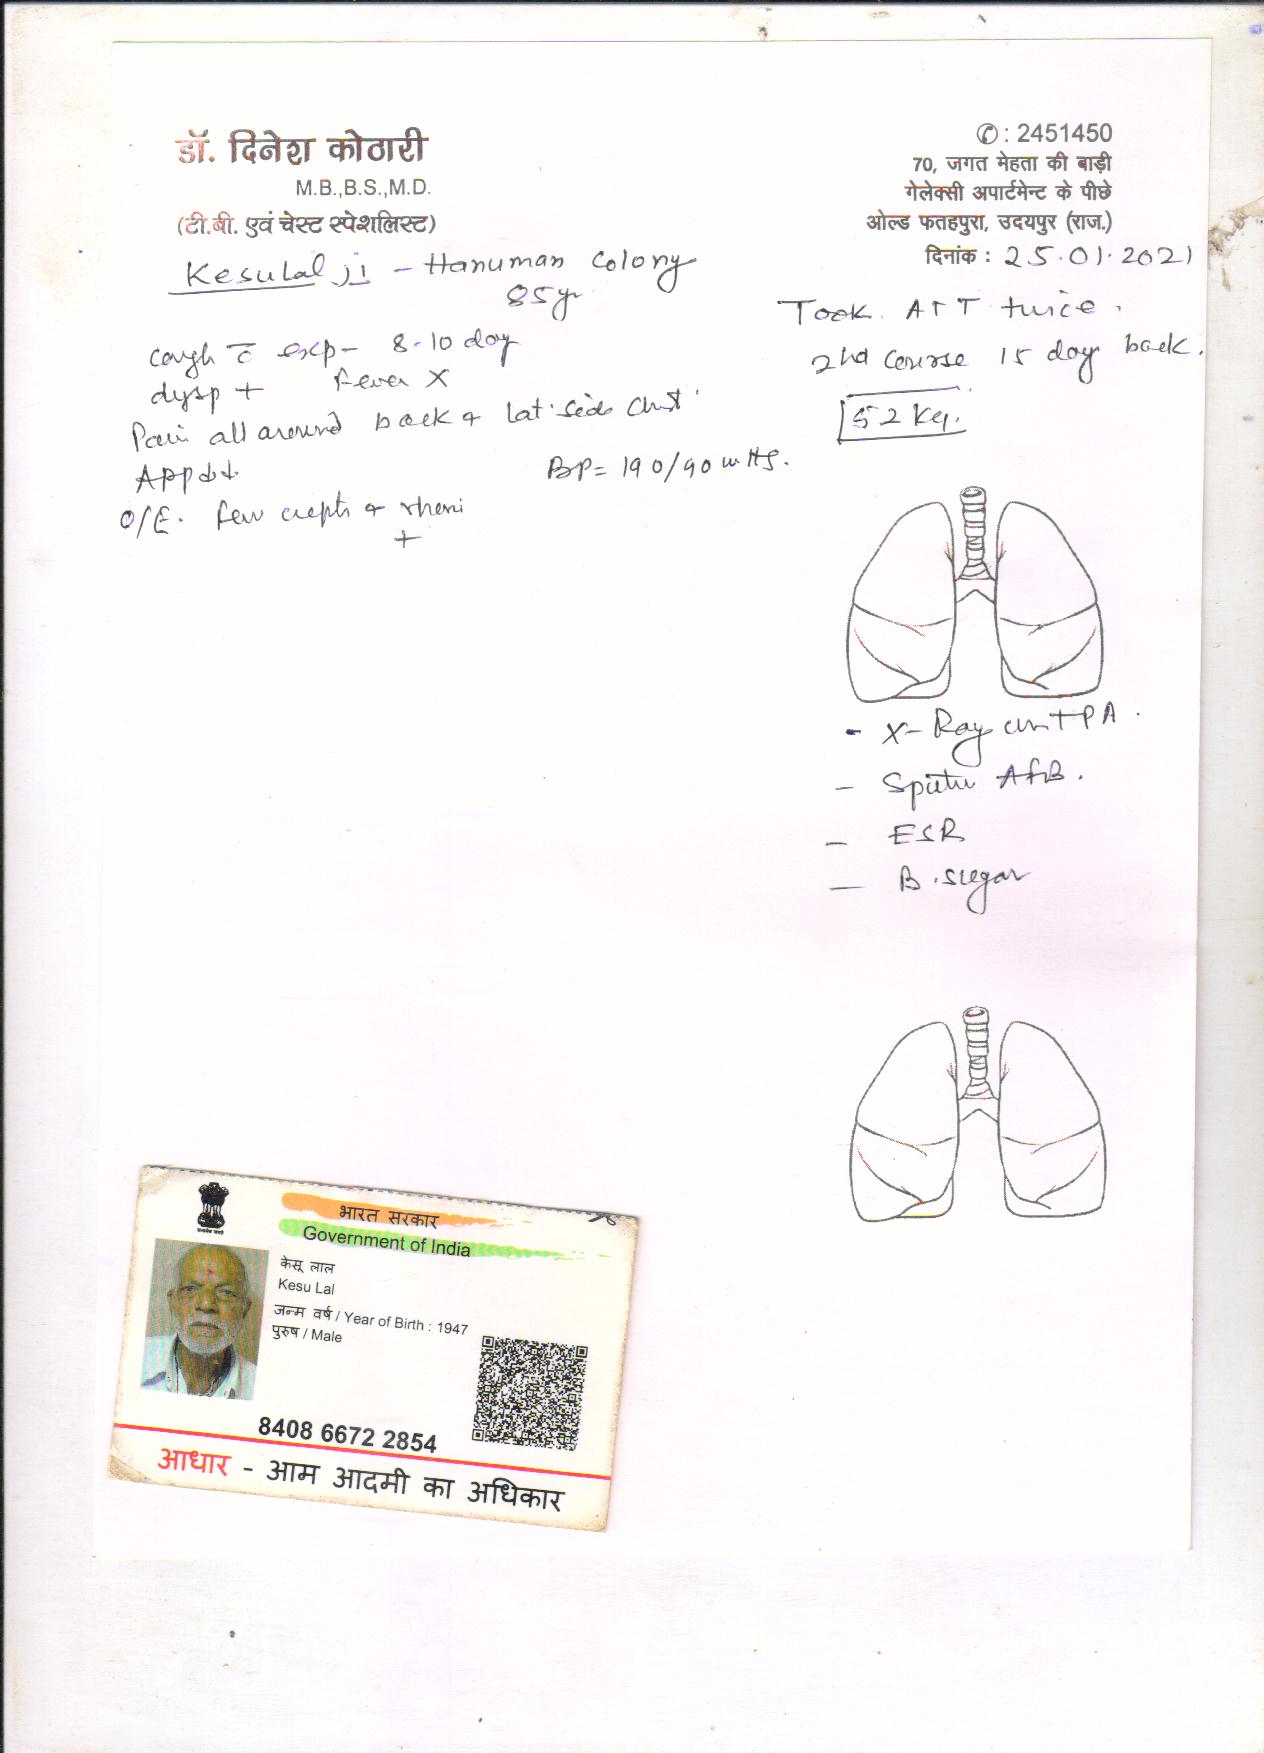 डॉ. दिनेश कोठारी
M.B.,B.S.,M.D.
(टी.बी. एवं चेस्ट स्पेशलिस्ट)
✆ : 2451450
70, जगत मेहता की बाड़ी
गेलेक्सी अपार्टमेन्ट के पीछे
ओल्ड फतहपुरा, उदयपुर (राज.)
दिनांक : 25.01.2021
Kesulal ji - Hanuman Colony
85yr
Took ATT twice.
2nd course 15 day back.
52 Kg.
cough c̄ exp - 8-10 day
dysp + fever X
Pain all around back & lat. side chest
App ↓↓
BP = 190/90 mHg.
O/E. few crepts & rhonci
+
- X-Ray chest PA.
- Sputu AFB.
- ESR
- B. sugar
भारत सरकार
Government of India
केसू लाल
Kesu Lal
जन्म वर्ष / Year of Birth : 1947
पुरुष / Male
8408 6672 2854
आधार - आम आदमी का अधिकार